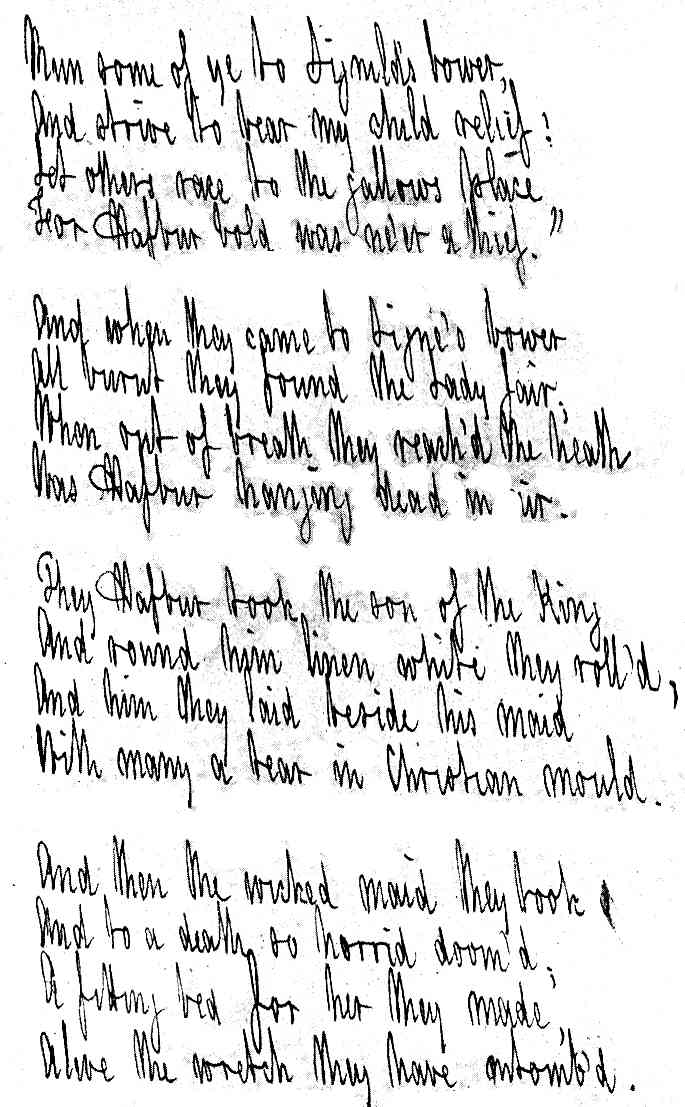 Run some of ye to Signild's bower,
And strive to bear my child relief:
Let others race to the gallows place
For Hafbur bold was ne'er a thief."
And when they came to Signe's bower
All burnt they found the Lady fair;
When out of breath they reach'd the heath
Was Hafbur hanging dead in air.
They Hafbur took, the son of the King
And round him linen white they roll'd,
And him they laid beside his maid
With many a tear in Christian mould.
And then the wicked maid they took
And to a death so horrid doom'd;
A fitting bed for her they made,
Alive the wretch they have entomb'd.